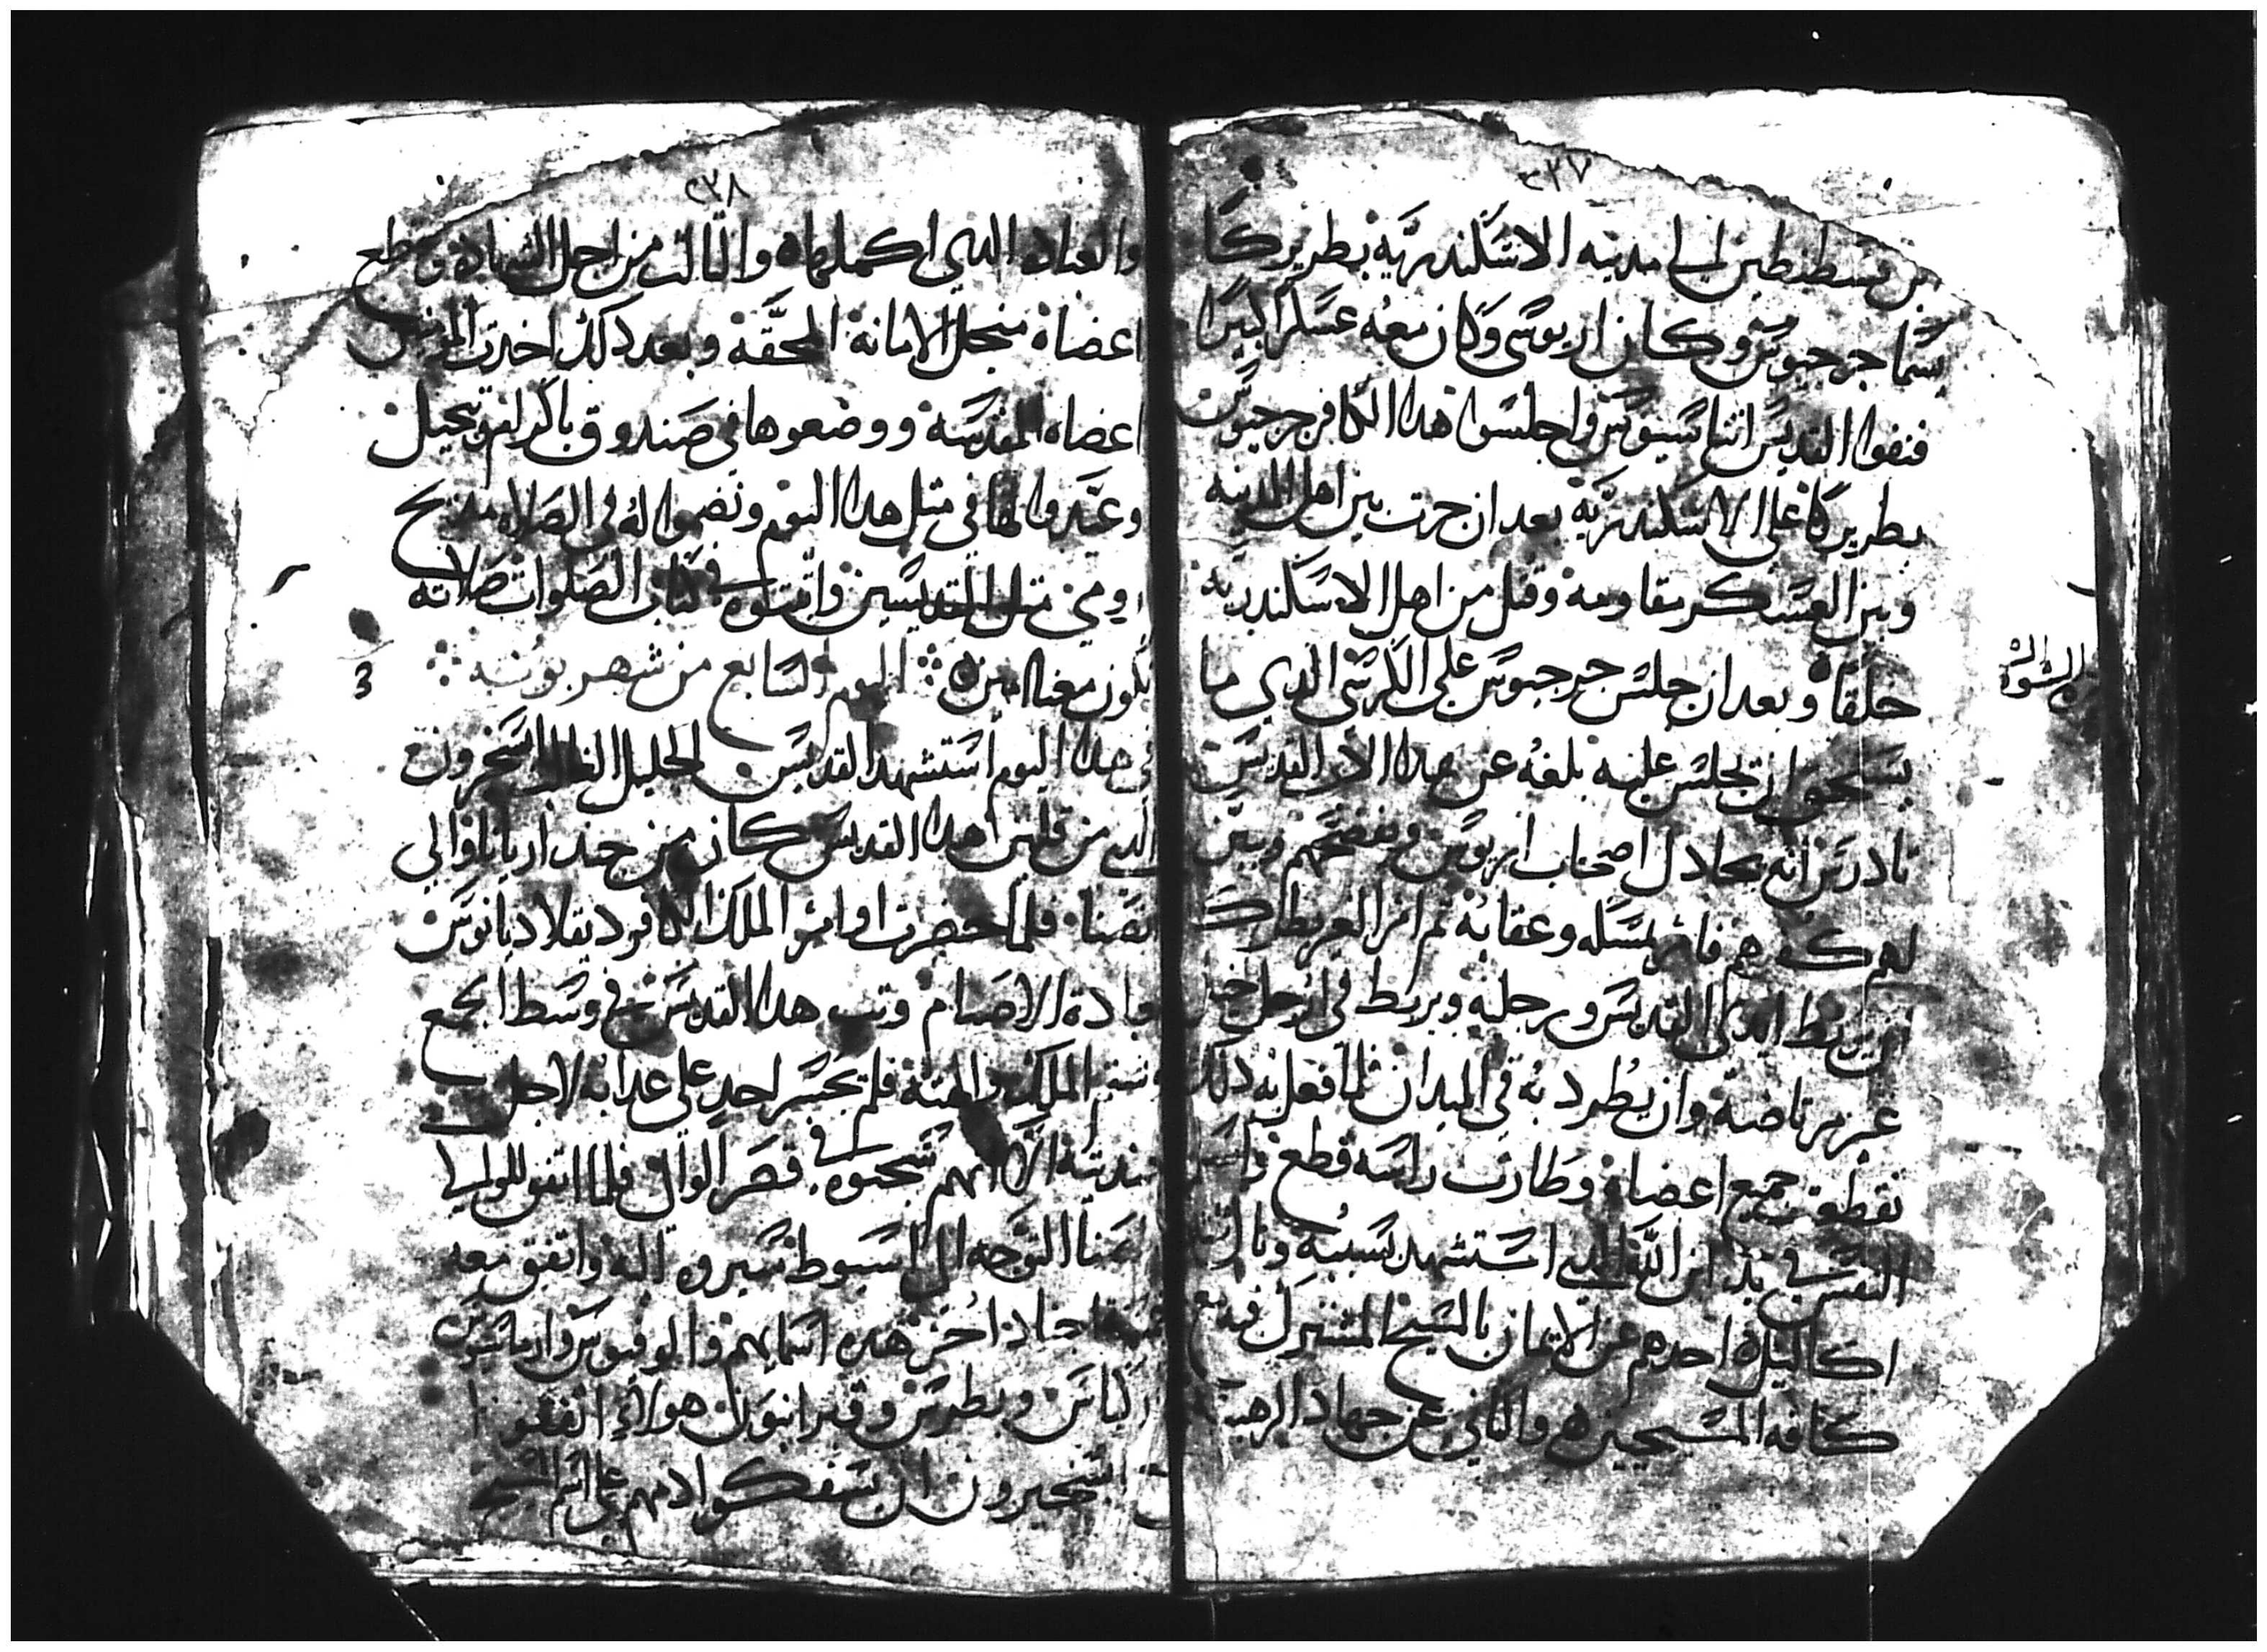 ٢٣٧
بن قسطنطين الى مدينه الاسكندريه بطريركا
يسما جرجيوس وكان اريوسى وكان معه عسكرا كبيرا
فنفوا القديس اتناسيوس واجلسوا هدا الكافر جرجيوس
بطريركا على الاسكندريه بعد ان جرت بين اهل المدينه
وبين العسكر مقاومه وقتل من اهل الاسكندريه
خلقا وبعد ان جلس جرجيوس على الكرسى الدي ما
يستحق ان يجلس عليه بلغه عن هدا الاب القديس
انه يجادل اصحاب اريوس ويفضحهم ويبين
لهم كفرهم فامر بمسكه وعقابه تم امر البطرك
ان يربط ايدي القديس ورجليه ويربط في ارجل خيل
غير مرتاضة وان يطرد به في الميدان فلما فعل به دلك
تقطعت جميع اعضاه وطارت راسه قطع واسلم
النفس في يد ابن الله الدي استشهد بسببه ونال تلت
اكاليل احدهم عن الايمان بالسيح المشترك فيه مع
كافه المسيحيين والتاني عن جهاد الرهبنة
٢٣٨
والعباده التي اكملها والتالت من اجل الشهادة وقطع
اعضاه منجل الامانة المحقة وبعد دلك اخدت المومنين
اعضاه المقدسة ووضعوها في صندوق باكرام وتبجيل
وعيدوا لها في متل هدا اليوم ونضموا له في الصلاه مديح
القديسين واتبتوه في كتاب الصلوات صلاته
تكون معنا امين اليوم السابع من شهر بوونه
في هدا اليوم استشهد القديس الجليل ابسخرون
الدي من قلين هدا القديس كان من جند اريانا والي
انصنا فلما حضرت اوامر الملك الكافر ديقلاديانوس
بعبادة الاصنام وتب هدا القديس في وسط الجمع
وشتم الملك والهته فلم يجسر احد على عدابه لاجل
جنديته الا انهم سجنوه في قصر الوالي فلما اتفق للوالي
انصنا التوجه الى اسيوط سيروه اليه واتفق معه
خمسة اجناد اخر هده اسمايهم والوفيوس وارمانيوس
واركياس وبطرس وقيرانيون هولاي اتفقوا
مع ابسخيرون ان يسفكوا دمهم على اسم المسيح